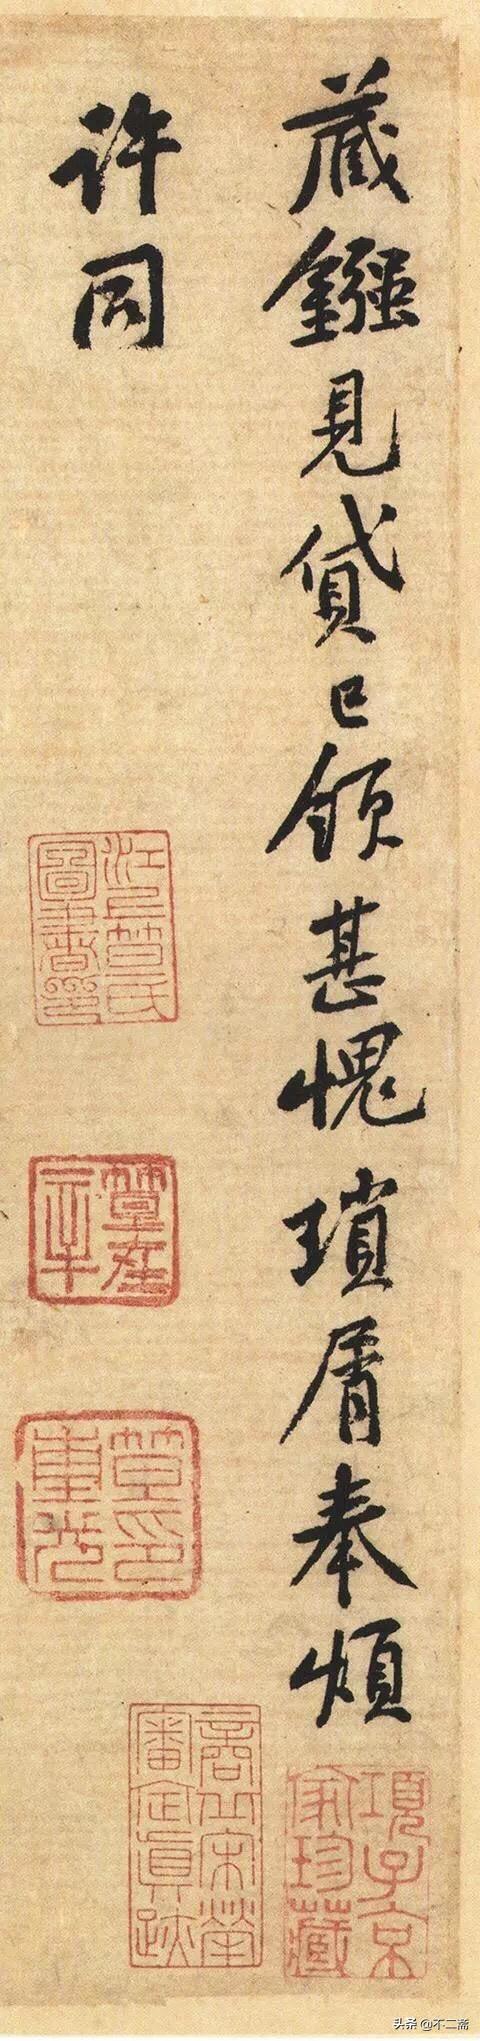 藏鏹見貸已領甚愧瑣屑奉煩
許同
江上笪氏圖書印
項子京家珍藏
商丘宋犖審定真跡
笪重光印
头条 @不二斋